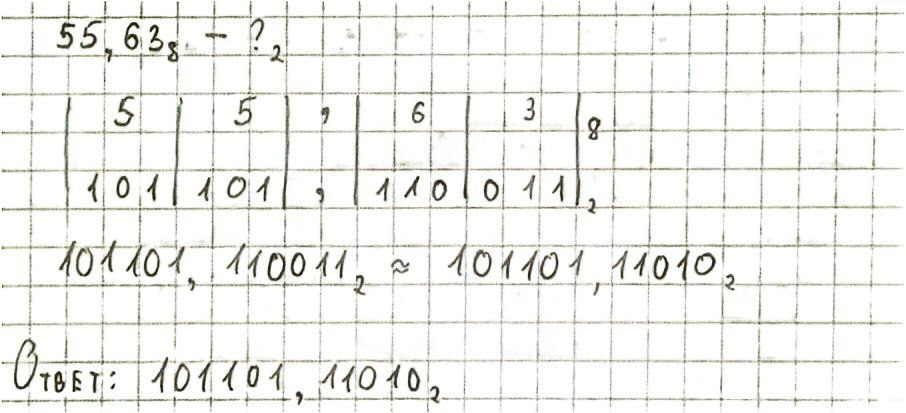 55,63₈ – ?₂
| 5 | 5 | , | 6 | 3 |₈
| 101 | 101 | , | 110 | 011 |₂
101101, 110011₂ ≈ 101101,11010₂
Ответ: 101101,11010₂